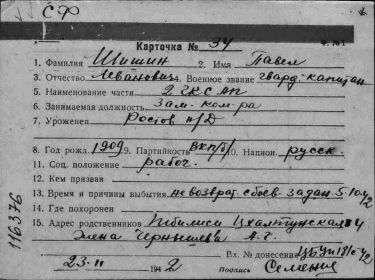 СФ
Карточка № 34
Ф. №1
1. Фамилия Шишин 2. Имя Павел
3. Отчество Иванович 4. Военное звание гвард. капитан
5. Наименование части 2 ГКСАП
6. Занимаемая должность Зам. ком-ра
7. Уроженец Ростов н/Д
8. Год рожд. 1909 9. Партийность ВКП/б/ 10. Национ. русск.
11. Соц. положение рабоч.
12. Кем призван
13. Время и причины выбытия не возврат. с боев. задан. 5.10.42
14. Где похоронен
15. Адрес родственников Тбилиси Цхалтунская 4
Жена Чернышева А. Г.
Вх. № донесения
23-11 1942 Подпись Семенив
116376